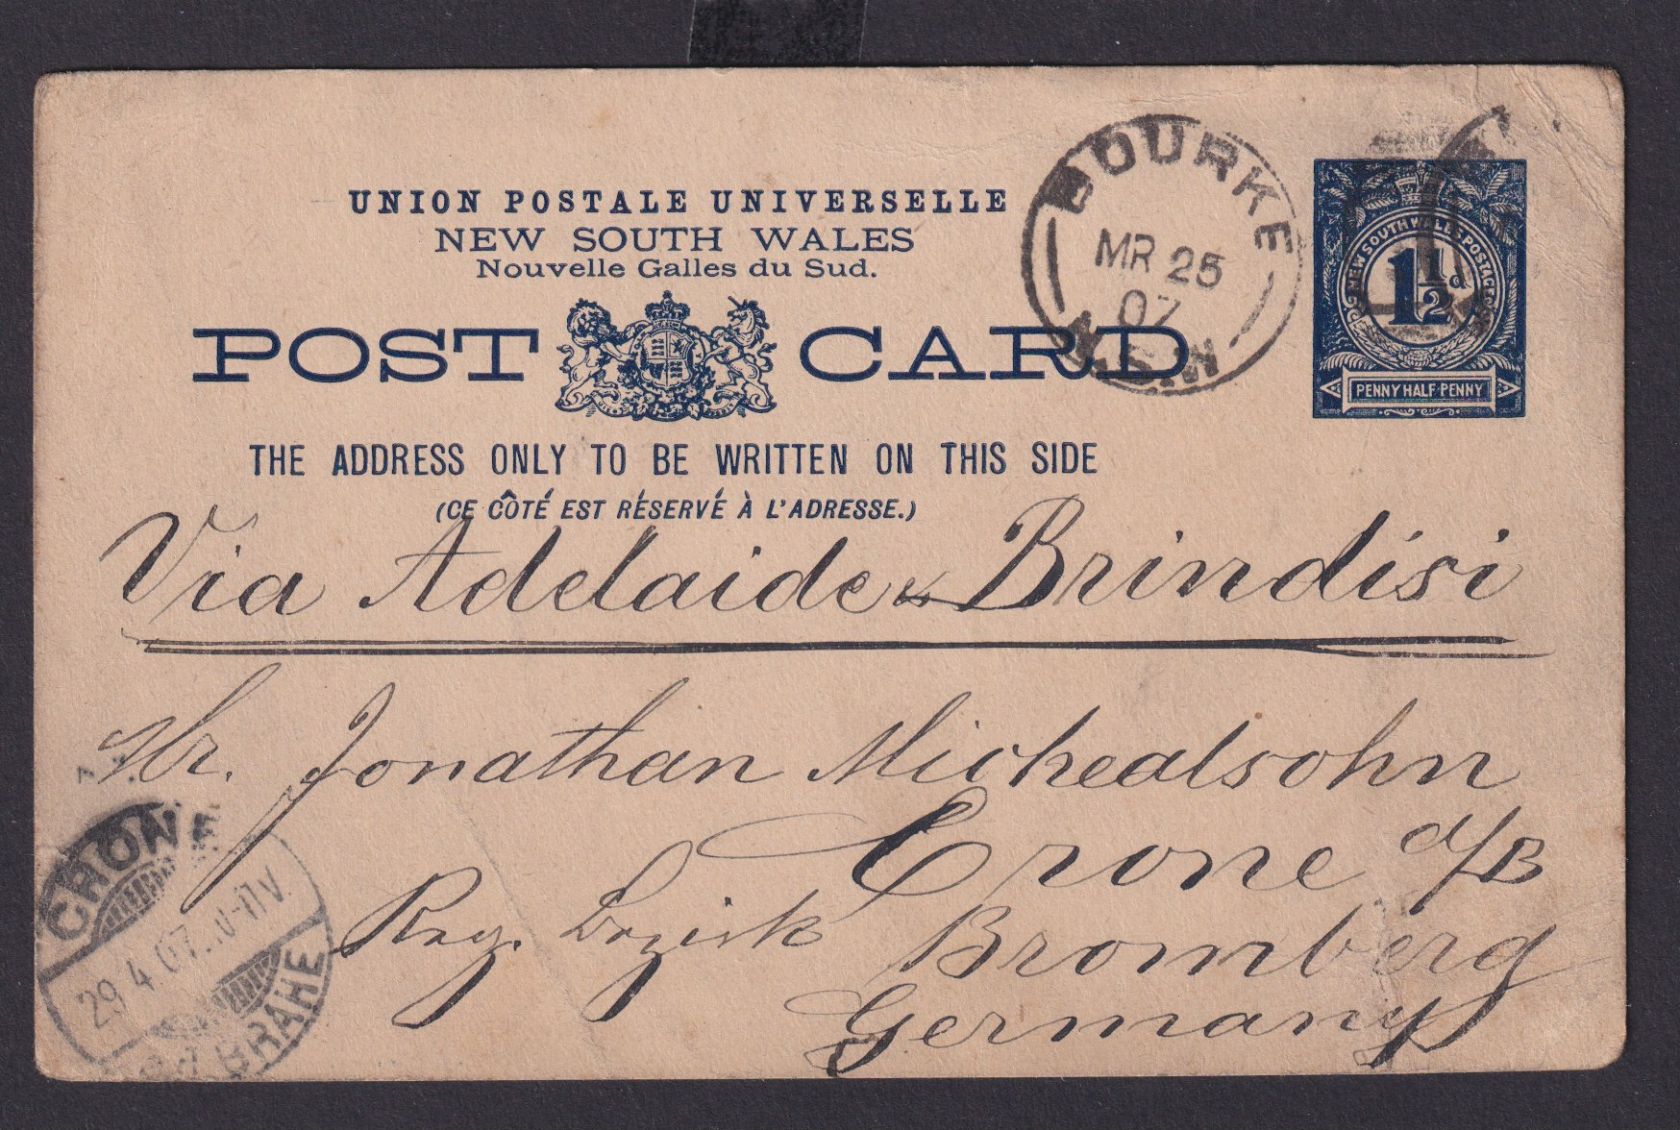 UNION POSTALE UNIVERSELLE
NEW SOUTH WALES
Nouvelle Galles du Sud.
POST CARD
THE ADDRESS ONLY TO BE WRITTEN ON THIS SIDE
(CE CÔTÉ EST RÉSERVÉ À L'ADRESSE.)
BOURKE
MR 25
07
N.S.W
NEW SOUTH WALES POSTAGE
1½d
PENNY HALF-PENNY
Via Adelaide & Brindisi
Mr. Jonathan Michealsohn
Crone a/B
Reg. Bezirk Bromberg
Germany
CRONE
29.4.07
BRAHE